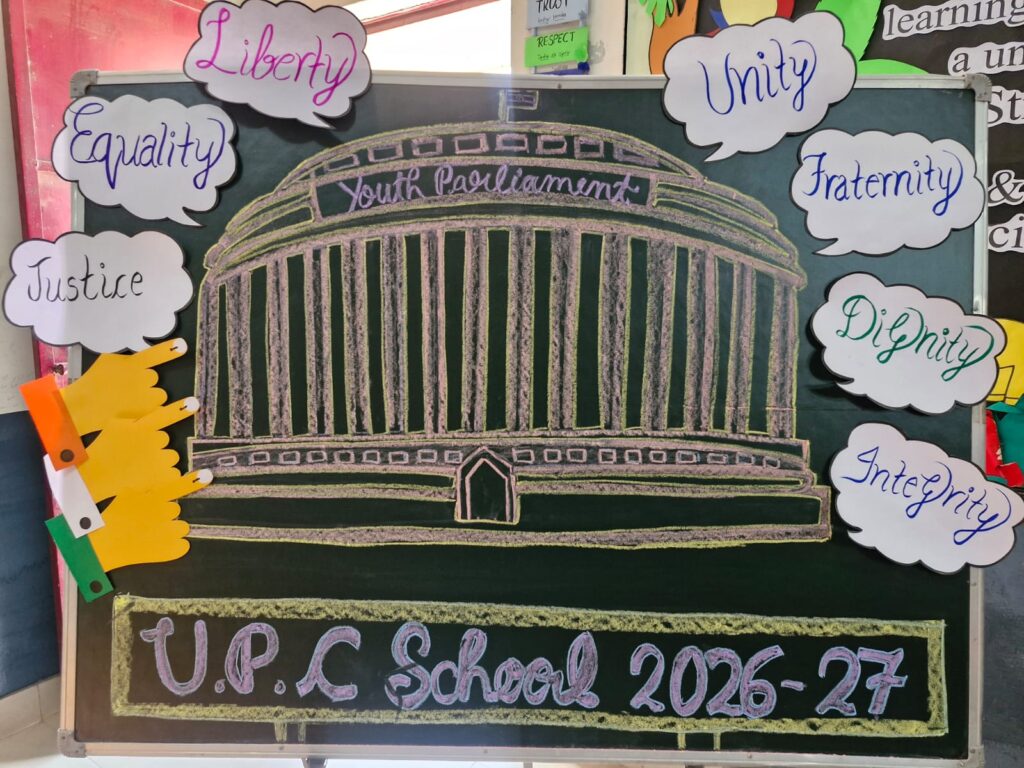 TRUST
RESPECT
learning
a un
St
&
ci
Liberty
Equality
Justice
Unity
Fraternity
Dignity
Integrity
Youth Parliament
U.P.C School 2026-27